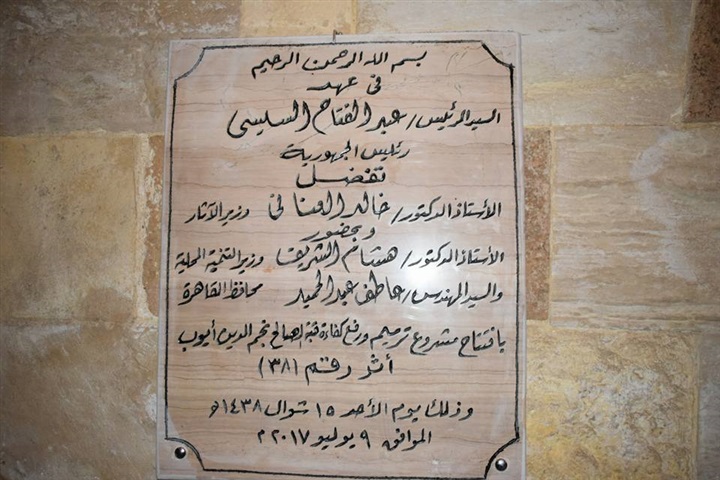 بسم الله الرحمن الرحيم
فى عهد
السيد الرئيس / عبد الفتاح السيسى
رئيس الجمهورية
تفضل
الأستاذ الدكتور / خالد العنانى وزير الآثار
وبحضور
الأستاذ الدكتور / هشام الشريف وزير التنمية المحلية
والسيد المهندس / عاطف عبد الحميد محافظ القاهرة
بافتتاح مشروع ترميم ورفع كفاءة قبة الصالح نجم الدين أيوب
أثر رقم (٣٨)
وذلك يوم الأحد ١٥ شوال ١٤٣٨ هـ
الموافق ٩ يوليو ٢٠١٧ م